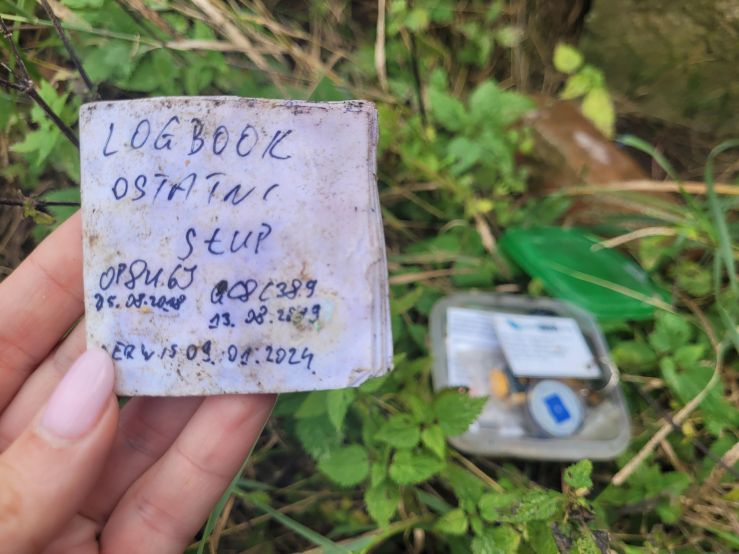 LOGBOOK
OSTATNI
SŁUP
OP8U6J GC8C389
05.08.2018 13.08.2019
SERWIS 09.01.2024